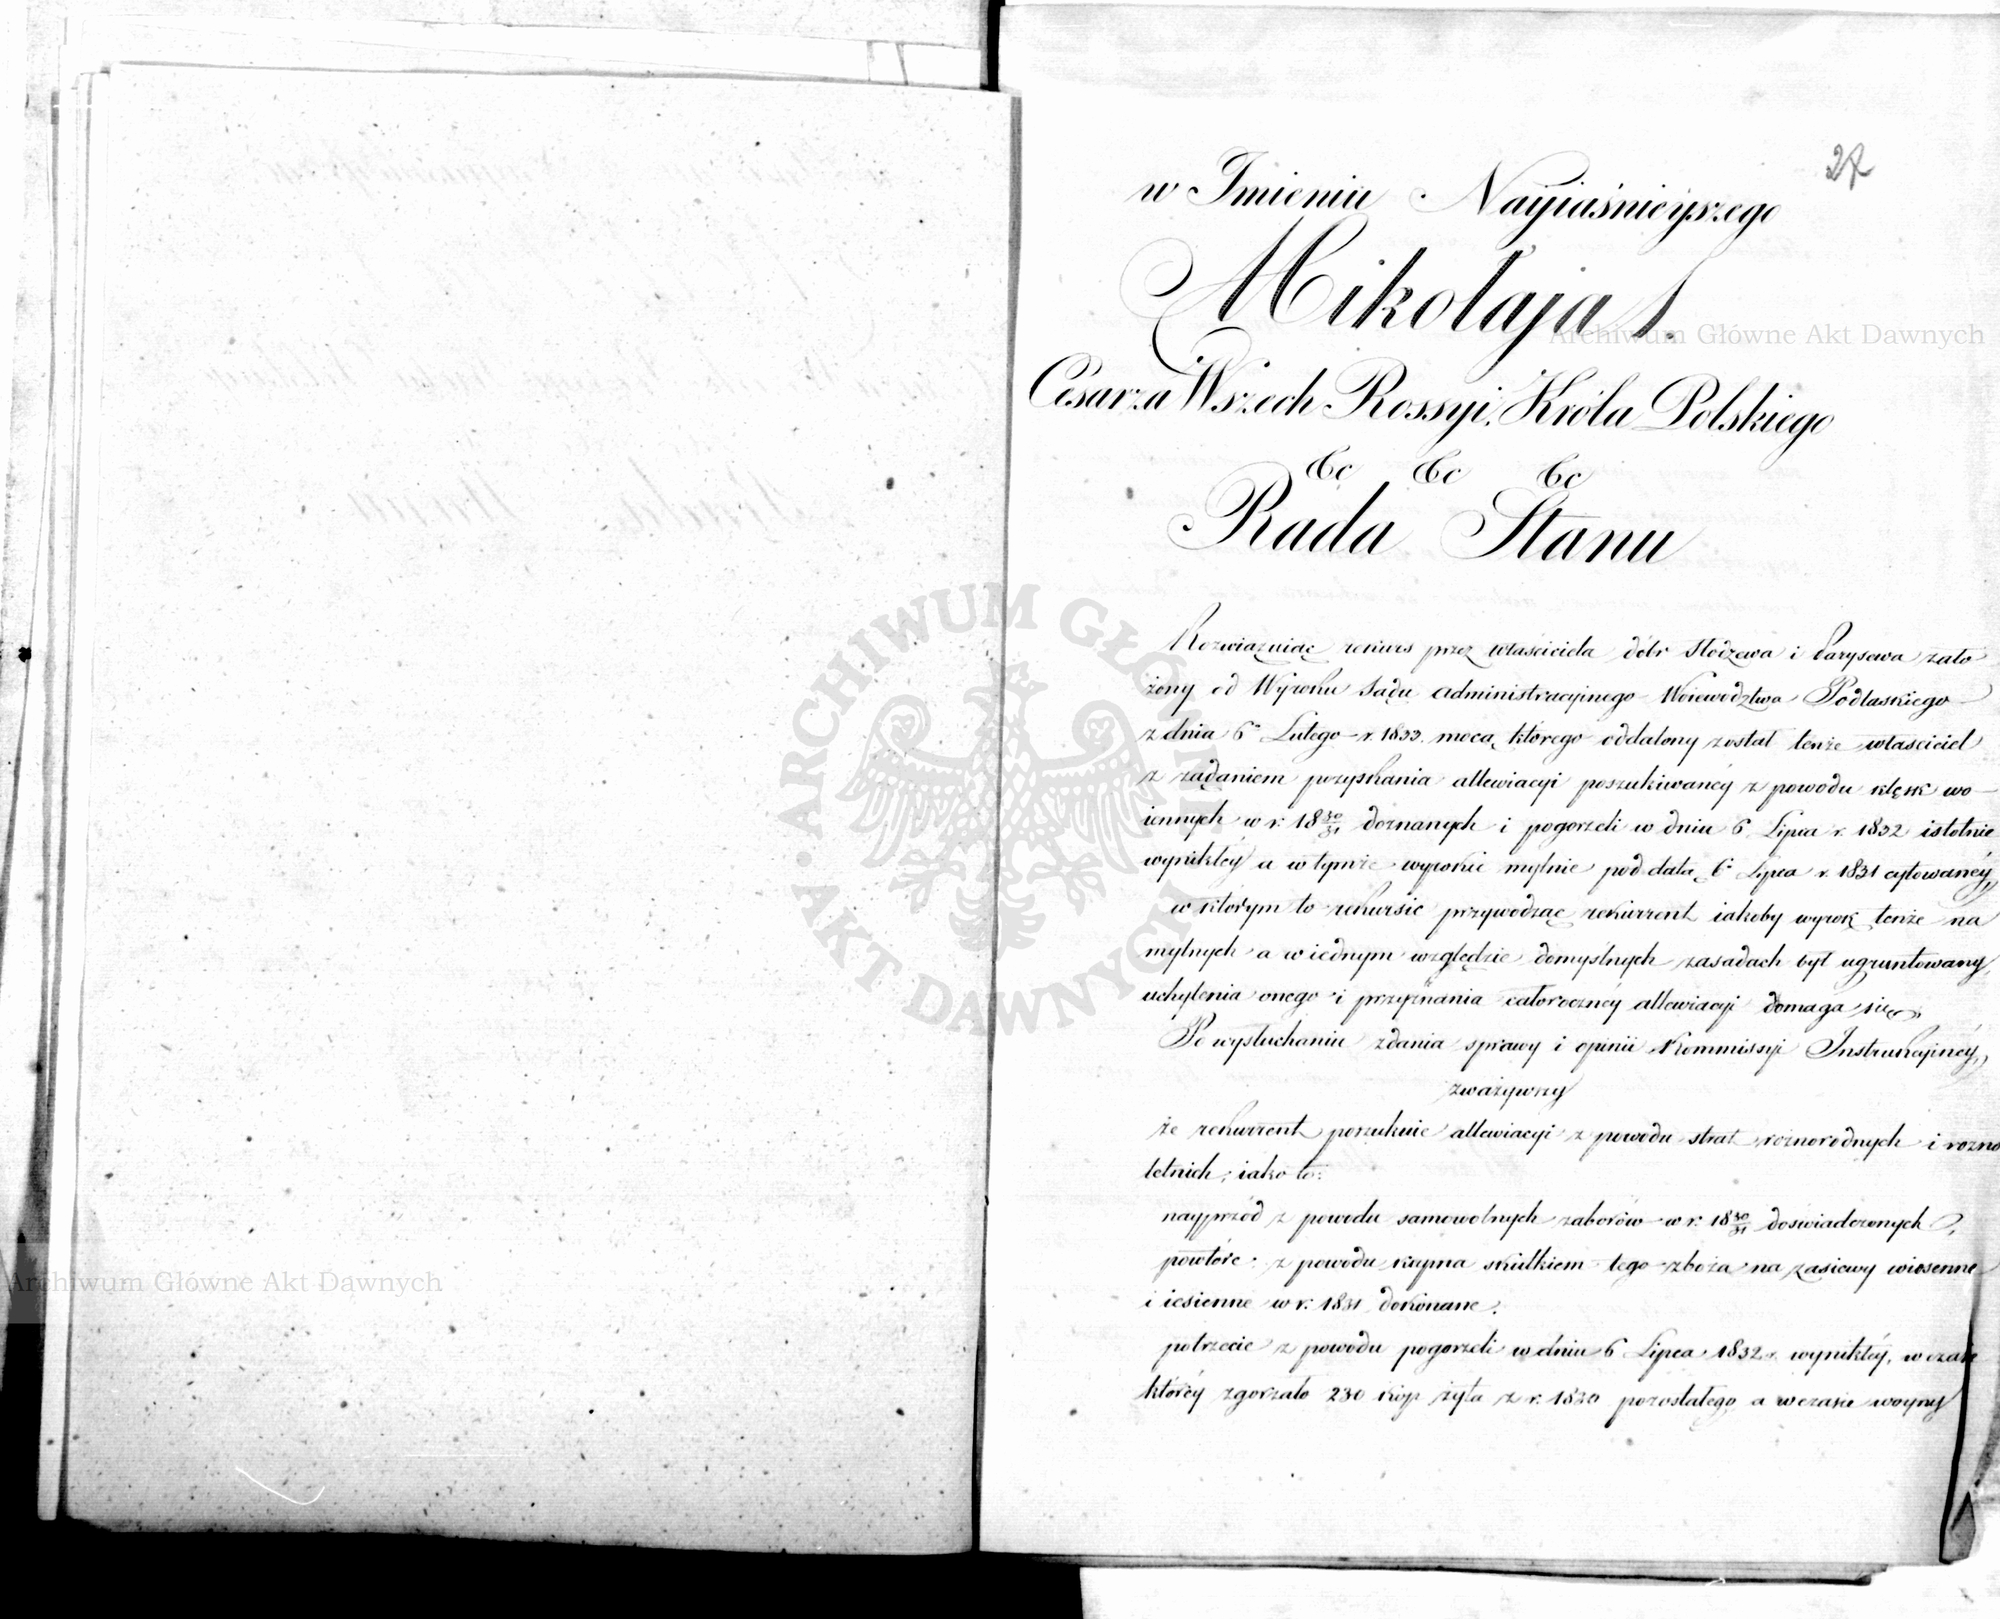 27
w Imieniu Nayiaśnieyszego
Mikołaja I.
Cesarza Wszech Rossyi, Króla Polskiego
&c &c &c
Rada Stanu
Rozwiązuiąc rekurs przez właściciela dóbr Stodzewa i Parysewa zało
żony od Wyroku Sądu administracyinego Woiewodztwa Podlaskiego
z dnia 6º Lutego r. 1833. mocą którego oddalony został tenże właściciel
z żądaniem pozyskania allewiacyi poszukiwanéy z powodu klęsk wo-
iennych w r. 18 30/31 doznanych i pogorzeli w dniu 6 Lipca r. 1832 istotnie
wynikłéy a w tymże wyroku mylnie pod datą 6º Lipca r. 1831 cytowanéy,
w którym to rekursie przywodząc rekurrent iakoby wyrok tenże na
mylnych a w iednym względzie domyślnych zasadach był ugruntowany,
uchylenia onego i przyznania całorocznéy allewiacyi domaga się;
Po wysłuchaniu zdania sprawy i opinii Kommissyi Instrukcyinéy,
zważywszy
że rekurrent poszukuie allewiacyi z powodu strat roznorodnych i rozno
letnich, iako to:
nayprzód z powodu samowolnych zaborów w r. 18 30/31 doswiadczonych,
powtóre: z powodu kupna skutkiem tego zboża na zasiewy wiosenne
i iesienne w r. 1831 dokonane.
potrzecie z powodu pogorzeli w dniu 6 Lipca 1832 r. wynikłéy, w czasie
któréy zgorzało 230 kop żyta z r. 1830 pozostałego a w czasie woyny
Archiwum Główne Akt Dawnych
ARCHIWUM GŁÓWNE AKT DAWNYCH
Archiwum Główne Akt Dawnych